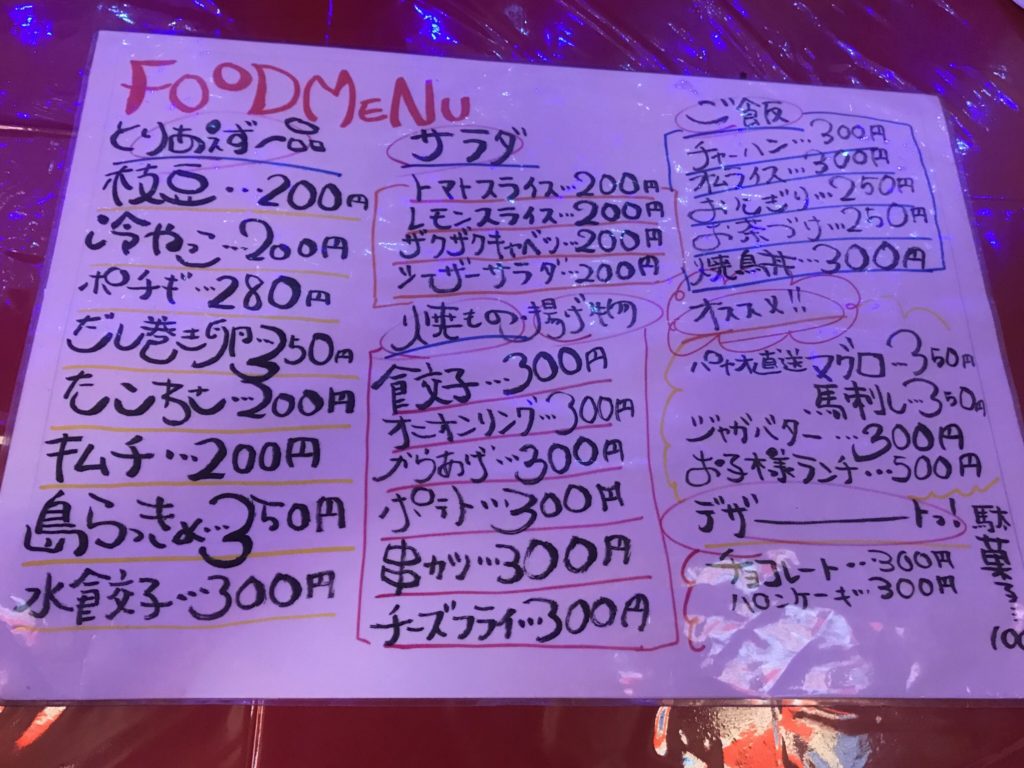 FOODMENU
とりあえず一品
枝豆…200円
冷やっこ…200円
ポチギ…280円
だし巻き卵…350円
たこわさ…200円
キムチ…200円
島らっきょ…350円
水餃子…300円
サラダ
トマトスライス…200円
レモンスライス…200円
ザクザクキャベツ…200円
シーザーサラダ…200円
焼もの 揚げ物
餃子…300円
オニオンリング…300円
からあげ…300円
ポテト…300円
串カツ…300円
チーズフライ…300円
ご飯
チャーハン…300円
オムライス…300円
おにぎり…250円
お茶づけ…250円
焼鳥丼…300円
オススメ!!
直送マグロ…350円
馬刺し…350円
ジャガバター…300円
お子様ランチ…500円
デザートっ!
チョコレート…300円
バロンケーキ…300円
駄菓子…100